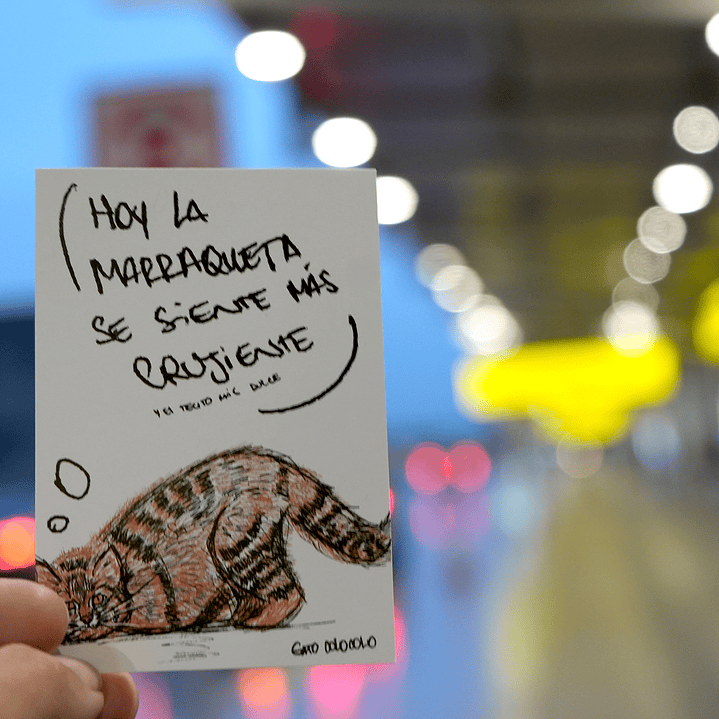 HOY LA
MARRAQUETA
SE SIENTE MÁS
CRUJIENTE
Y EL TECITO MÁS DULCE
GATO COLOCOLO